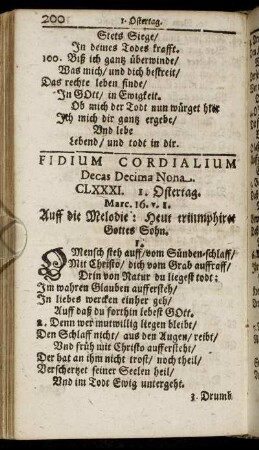 200 1. Ostertag.
Stets Siege/
In deines Todes krafft.
100. Biß ich gantz überwinde/
Was mich/ und dich bestreit/
Das rechte leben finde/
In GOtt/ in Ewigkeit.
Ob mich der Todt nun würget hier
Ich mich dir gantz ergebe/
Und lebe
Lebend/ und todt in dir.
FIDIUM CORDIALIUM
Decas Decima Nona.
CLXXXI. 1. Ostertag.
Marc. 16. v. 1.
Auff die Melodie: Heut triumphiret
Gottes Sohn.
1.
O Mensch steh auff/ vom Sünden-schlaff/
Mit Christo/ dich vom Grab auffraff/
Drin von Natur du liegest todt:
Im wahren Glauben aufferſteh/
In liebes wercken einher geh/
Auff daß du forthin lebest GOtt.
2. Denn wer mutwillig liegen bleibt/
Den Schlaff nicht/ aus den Augen/ reibt/
Und früh mit Christo aufferſteht/
Der hat an ihm nicht trost/ noch theil/
Verschertzet seiner Seelen heil/
Und im Todt Ewig untergeht.
3. Drumb